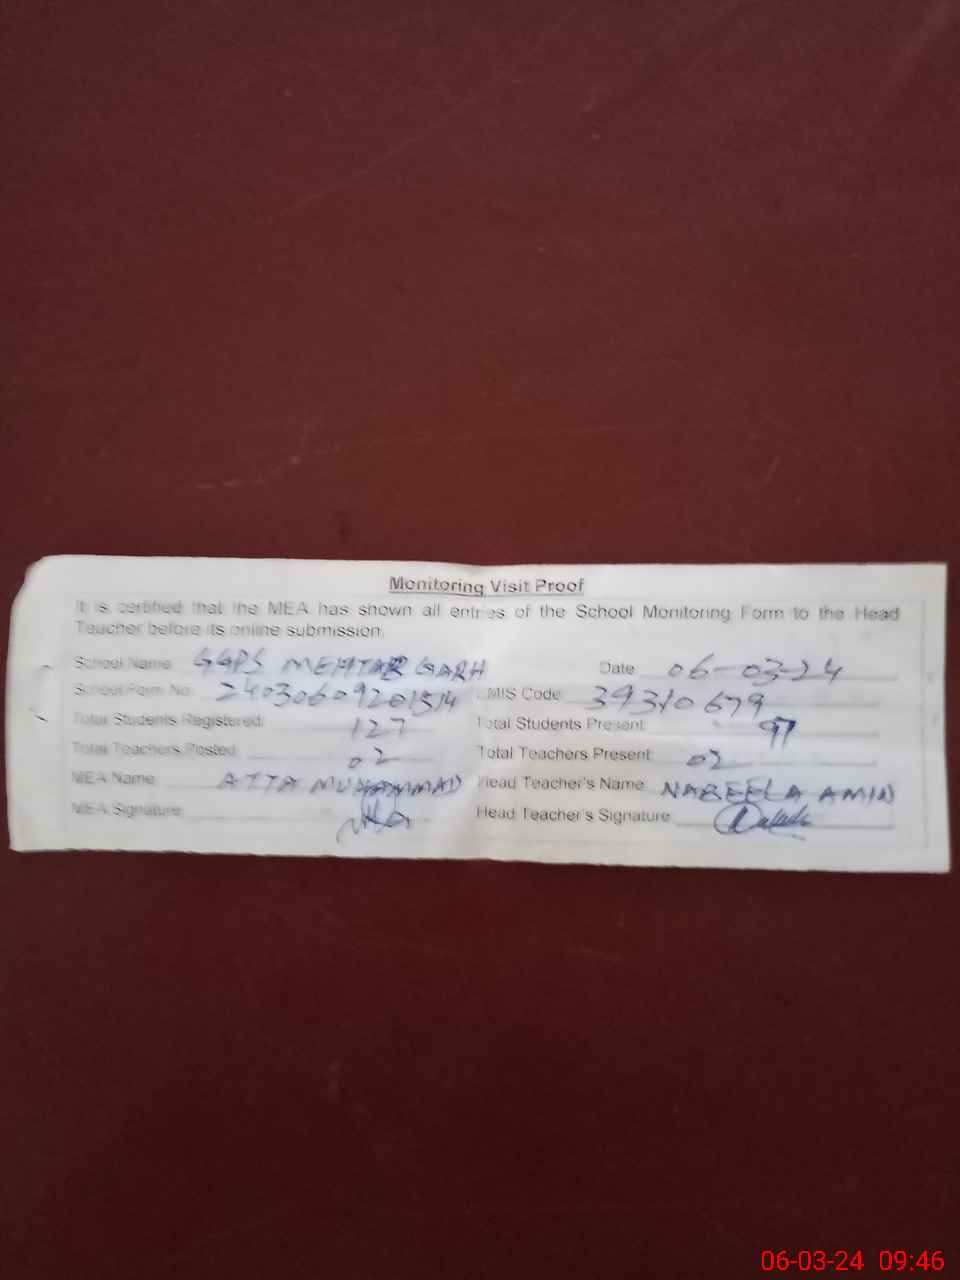 Monitoring Visit Proof
It is certified that the MEA has shown all entries of the School Monitoring Form to the Head
Teacher before its online submission.
School Name GGPS MEHTAR GARH Date 06-03-24
School Form No. 24030609201514 EMIS Code 39310679
Total Students Registered: 127 Total Students Present: 97
Total Teachers Posted: 02 Total Teachers Present: 02
MEA Name ATTA MUHAMMAD Head Teacher's Name NABEELA AMIN
MEA Signature Head Teacher's Signature
06-03-24 09:46